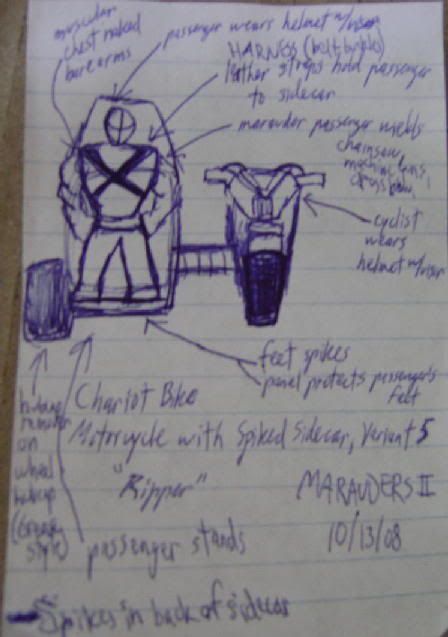 muscular
chest naked
bare arms
passenger wears helmet w/visor
HARNESS (belt buckle)
leather straps hold passenger
to sidecar
marauder passenger wields
chainsaw,
machine guns,
crossbow,
cyclist
wears
helmet w/visor
feet spikes
panel protects passenger's
feet
on
wheel
hubcap
style)
Chariot Bike
Motorcycle with Spiked Sidecar, Variant 5
"Ripper"
MARAUDERS II
10/13/08
passenger stands
Spikes in back of sidecar